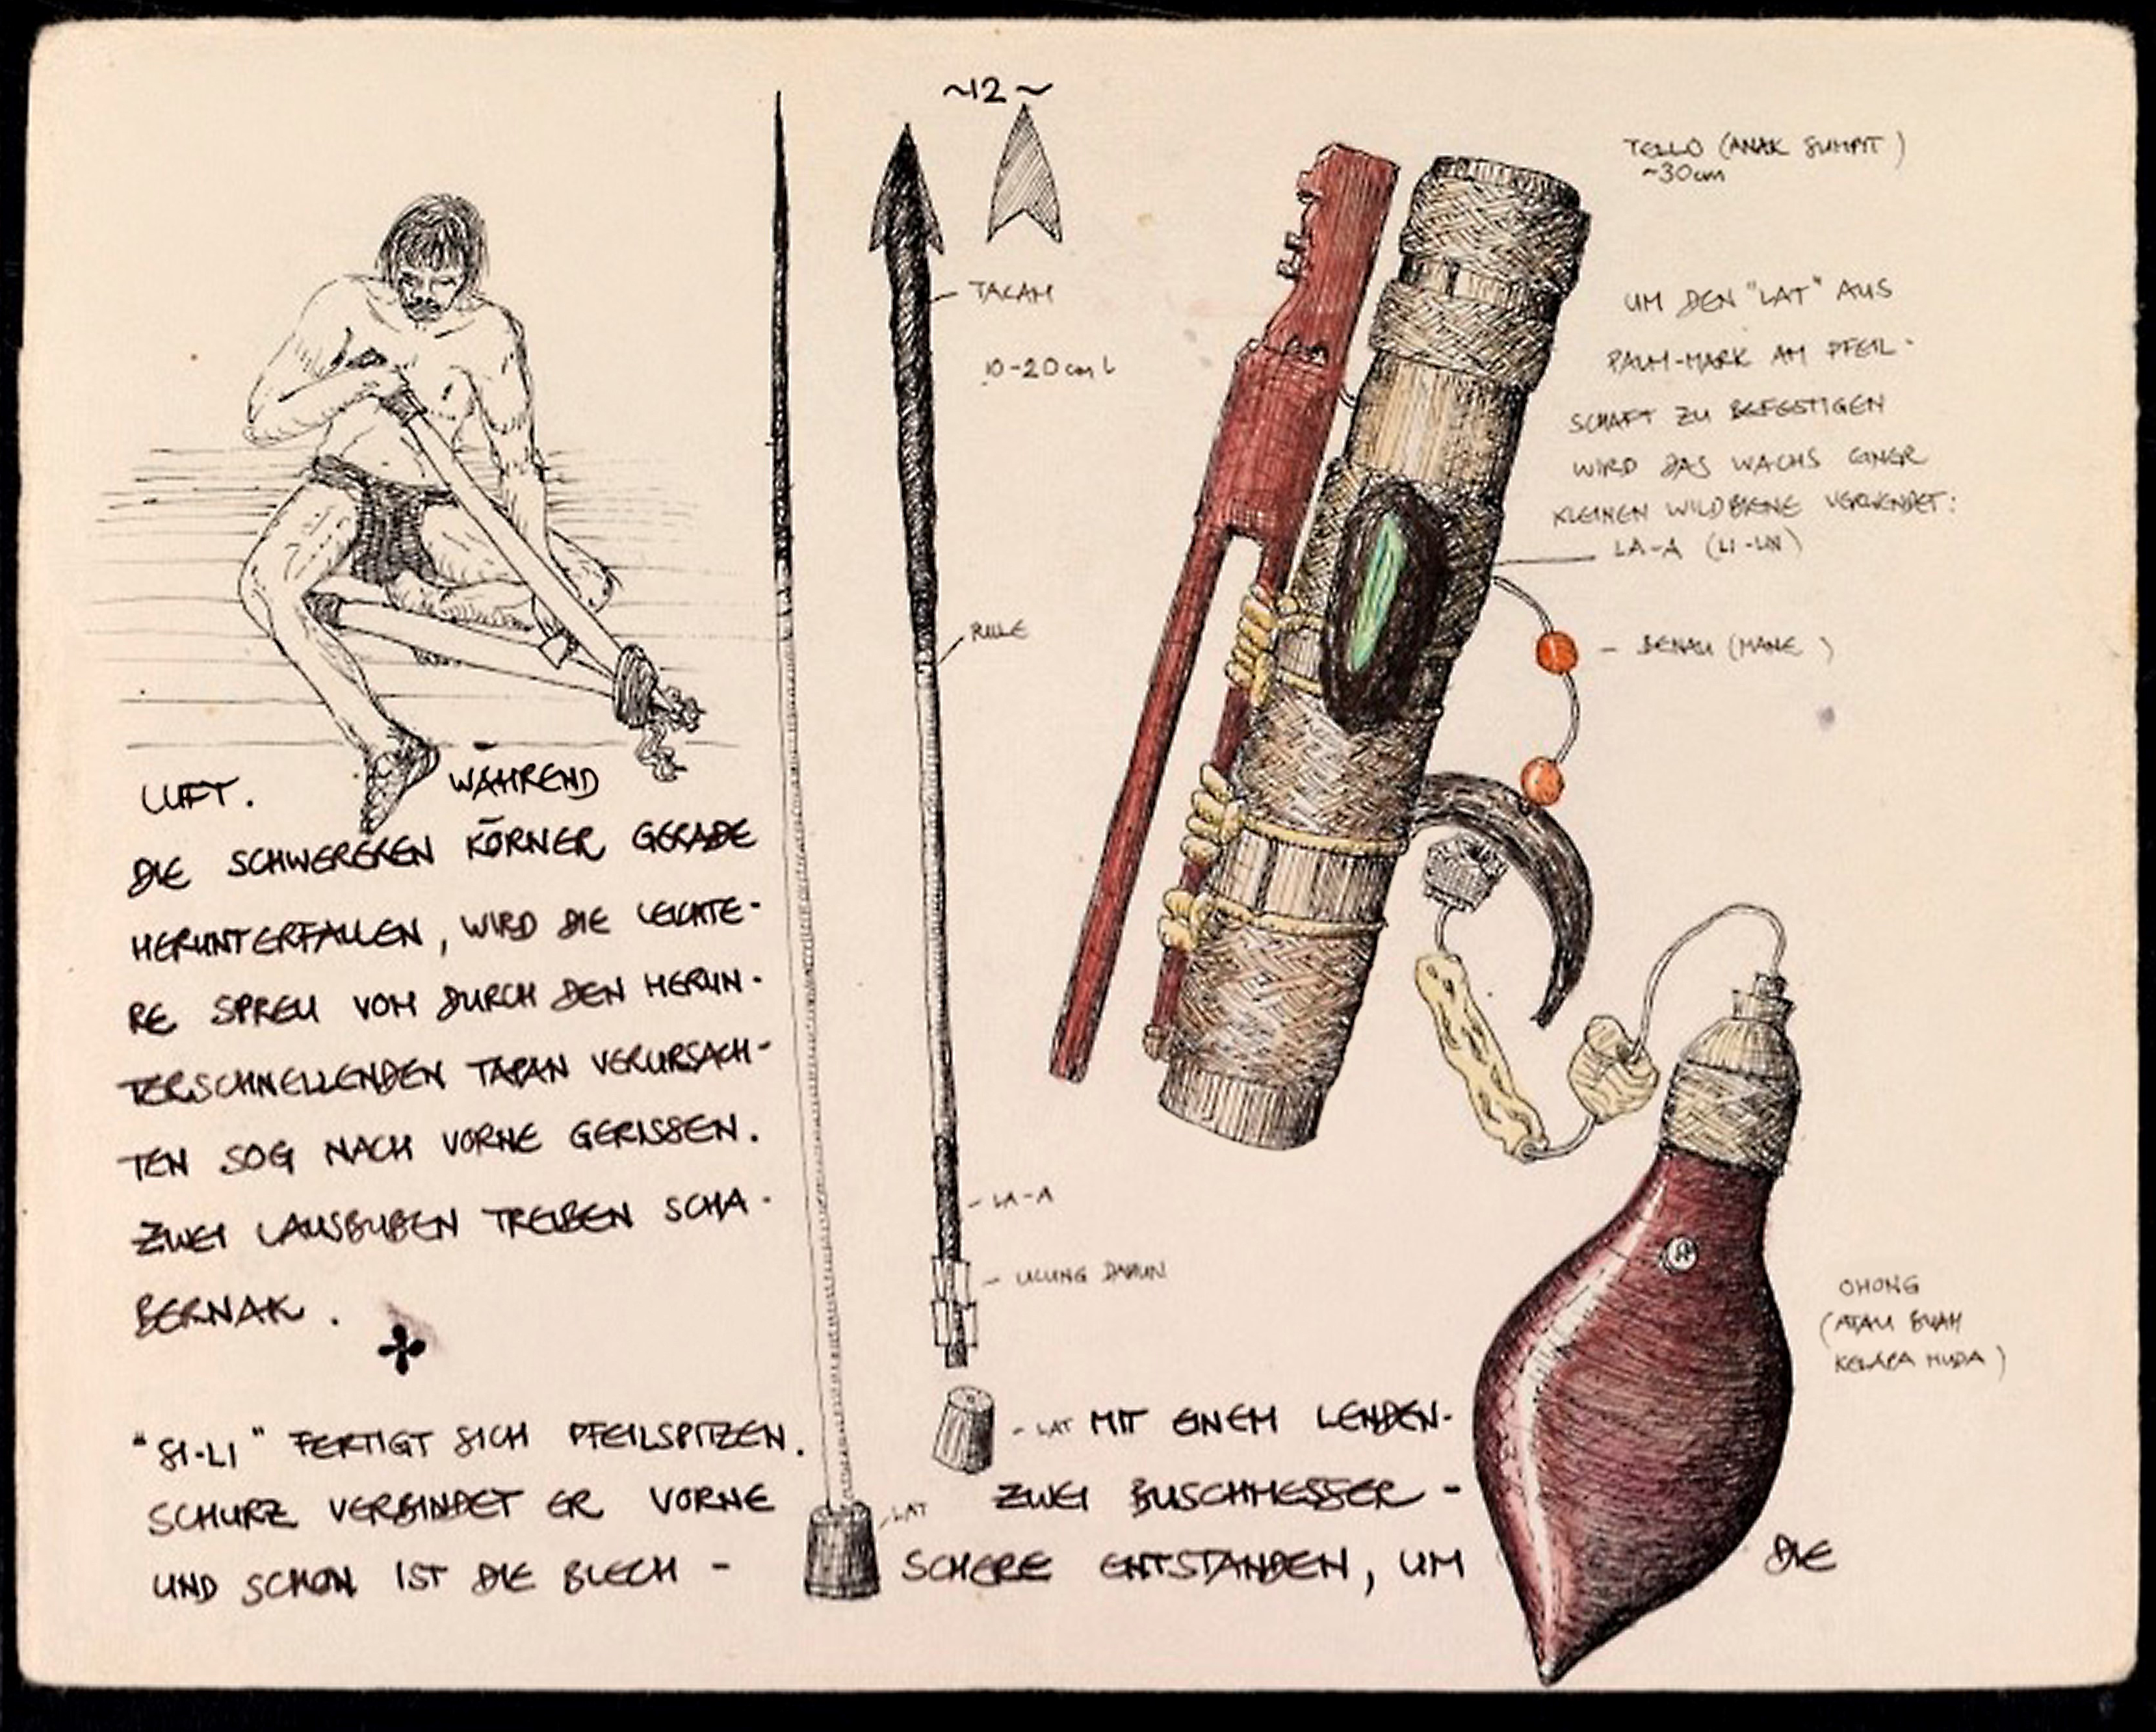 ~12~
TELLO (ANAK SUMPIT)
~30cm
TACAH
10-20cm L
UM DEN "LAT" AUS
PALM-MARK AM PFEIL-
SCHAFT ZU BEFESTIGEN
WIRD DAS WACHS EINER
KLEINEN WILDBIENE VERWENDET:
LA-A (LI-LIN)
RILLE
- BENAU (MANE)
LUFT. WÄHREND
DIE SCHWEREREN KÖRNER GERADE
HERUNTERFALLEN, WIRD DIE LEICHTE-
RE SPREU VOM DURCH DEN HERUN-
TERSCHNELLENDEN TAPAN VERURSACH-
TEN SOG NACH VORNE GERISSEN.
ZWEI LAUSBUBEN TREIBEN SCHA-
BERNAK.
- LA-A
- UJUNG DAHUN
OHONG
(ATAU BUAH
KELAPA MUDA)
"SI-LI" FERTIGT SICH PFEILSPITZEN. - LAT MIT EINEM LENDEN-
SCHURZ VERBINDET ER VORNE - LAT ZWEI BUSCHMESSER -
UND SCHON IST DIE BLECH - SCHERE ENTSTANDEN, UM DIE